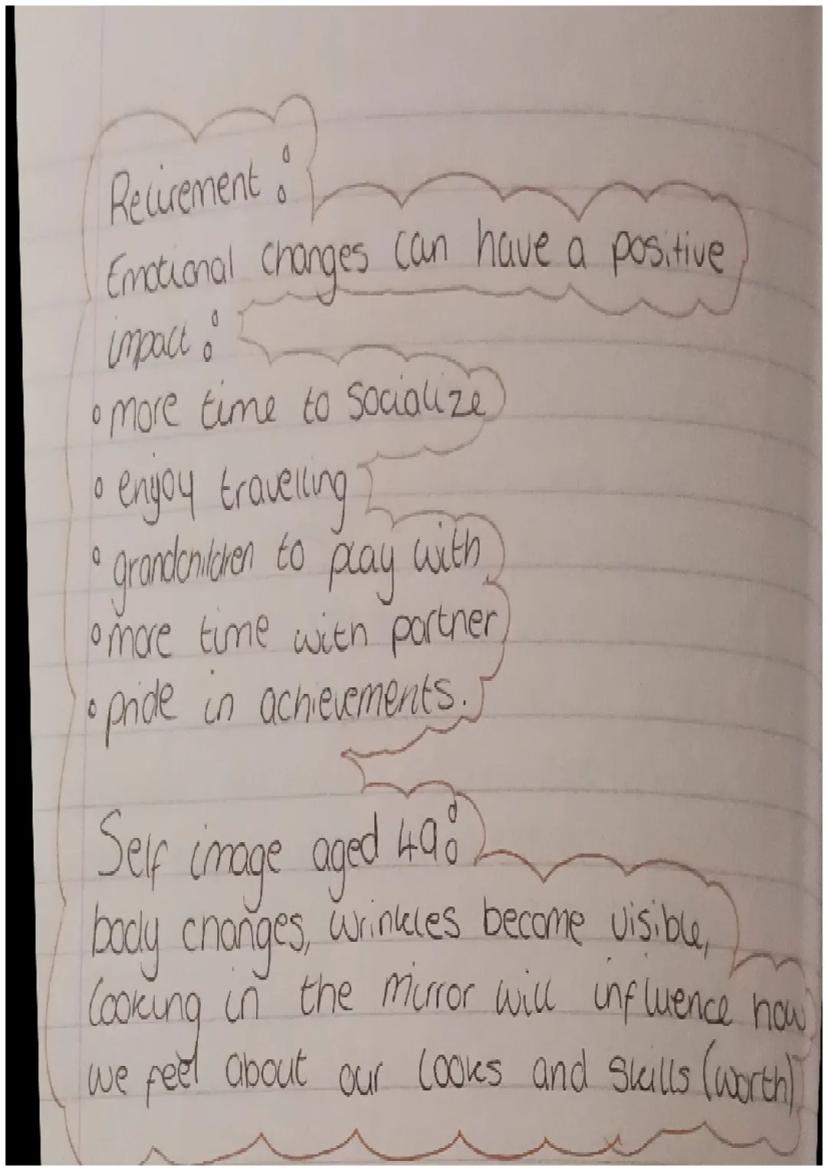 Retirement:
Emotional changes can have a positive
impact:
• more time to socialize
• enjoy travelling
• grandchildren to play with
• more time with partner
• pride in achievements.
Self image aged 49:
body changes, wrinkles become visible,
looking in the mirror will influence how
we feel about our looks and skills (worth)